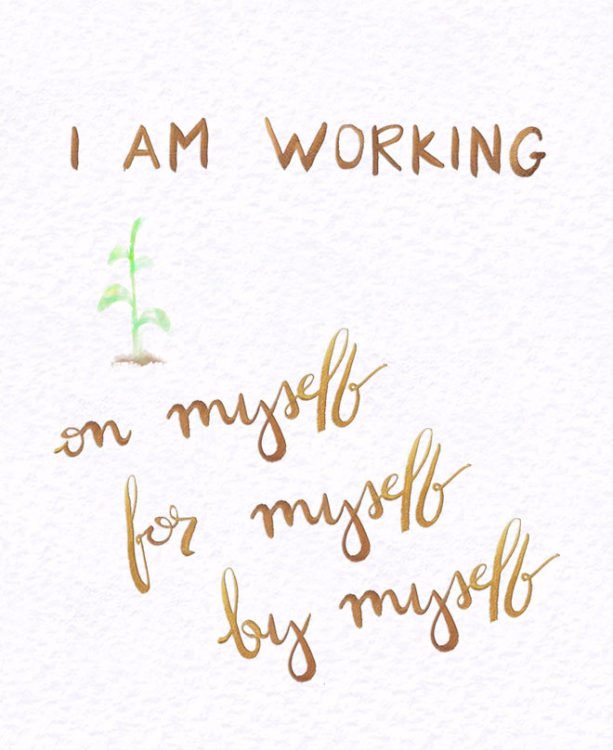 I AM WORKING
on myself
for myself
by myself